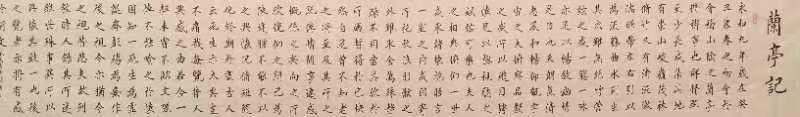 蘭亭記
永和九年歲在癸
丑暮春之初會于
會稽山陰之蘭亭
脩禊事也群賢畢
至少長咸集此地
有崇山峻嶺茂林
脩竹又有清流激
湍暎帶左右引以
為流觴曲水列坐
其次雖無絲竹管
弦之盛一觴一詠
亦足以暢敘幽情
是日也天朗氣清
惠風和暢仰觀宇
宙之大俯察品類
之盛所以遊目騁
懷足以極視聽之
娛信可樂也夫人
之相與俯仰一世
或取諸懷抱悟言
一室之內或因寄
所託放浪形骸之
外雖趣舍萬殊靜
躁不同當其欣於
所遇暫得於己快
然自足曾不知老
之將至及其所之
既惓情隨事遷感
慨係之矣向之所
欣俛仰之間以為
陳迹猶不能不以
之興懷況脩短隨
化終期於盡古人
云死生亦大矣豈
不痛哉每覽昔人
興感之由若合一
契未嘗不臨文嗟
悼不能喻之於懷
固知一死生為虛
誕齊彭殤為妄作
後之視今亦猶今
之視昔悲夫故列
敘時人錄其所述
雖世殊事異所以
興懷其致一也後
之覽者亦將有感